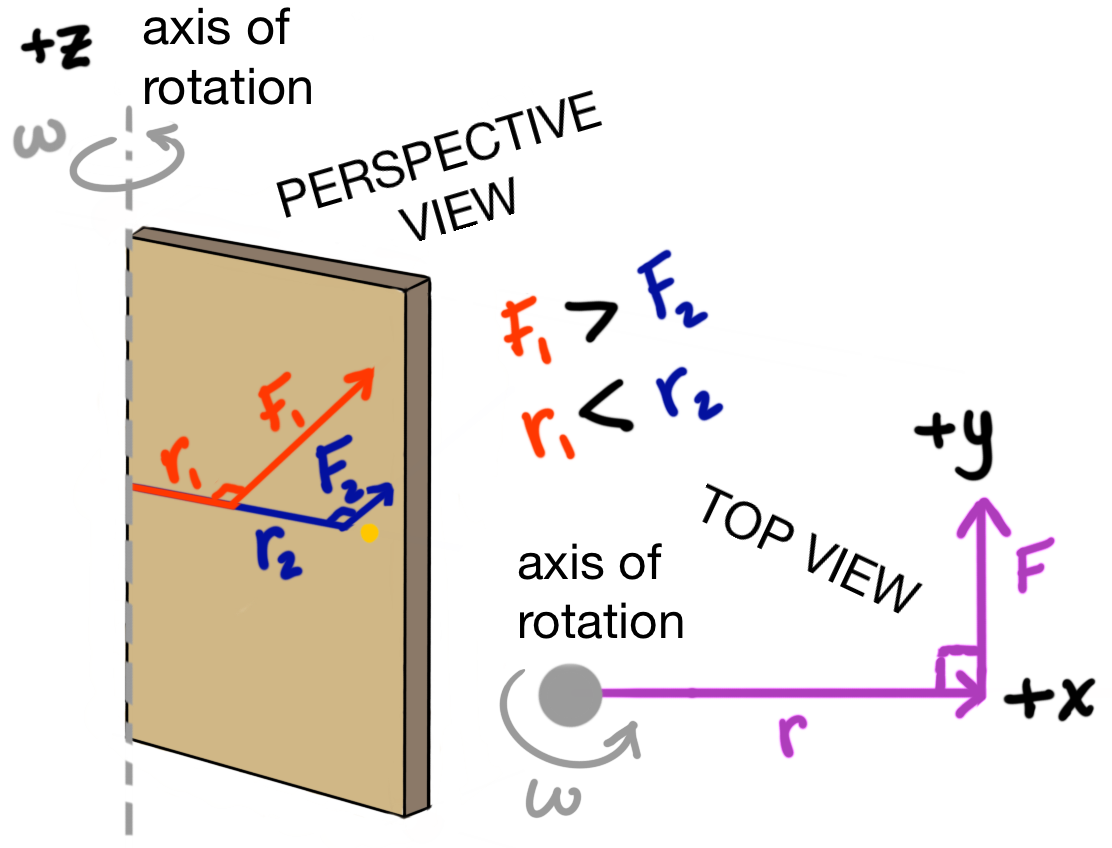 +z
axis of
rotation
ω
PERSPECTIVE
VIEW
F₁ > F₂
r₁ < r₂
F₁
r₁
F₂
r₂
TOP VIEW
+y
F
axis of
rotation
+x
r
ω